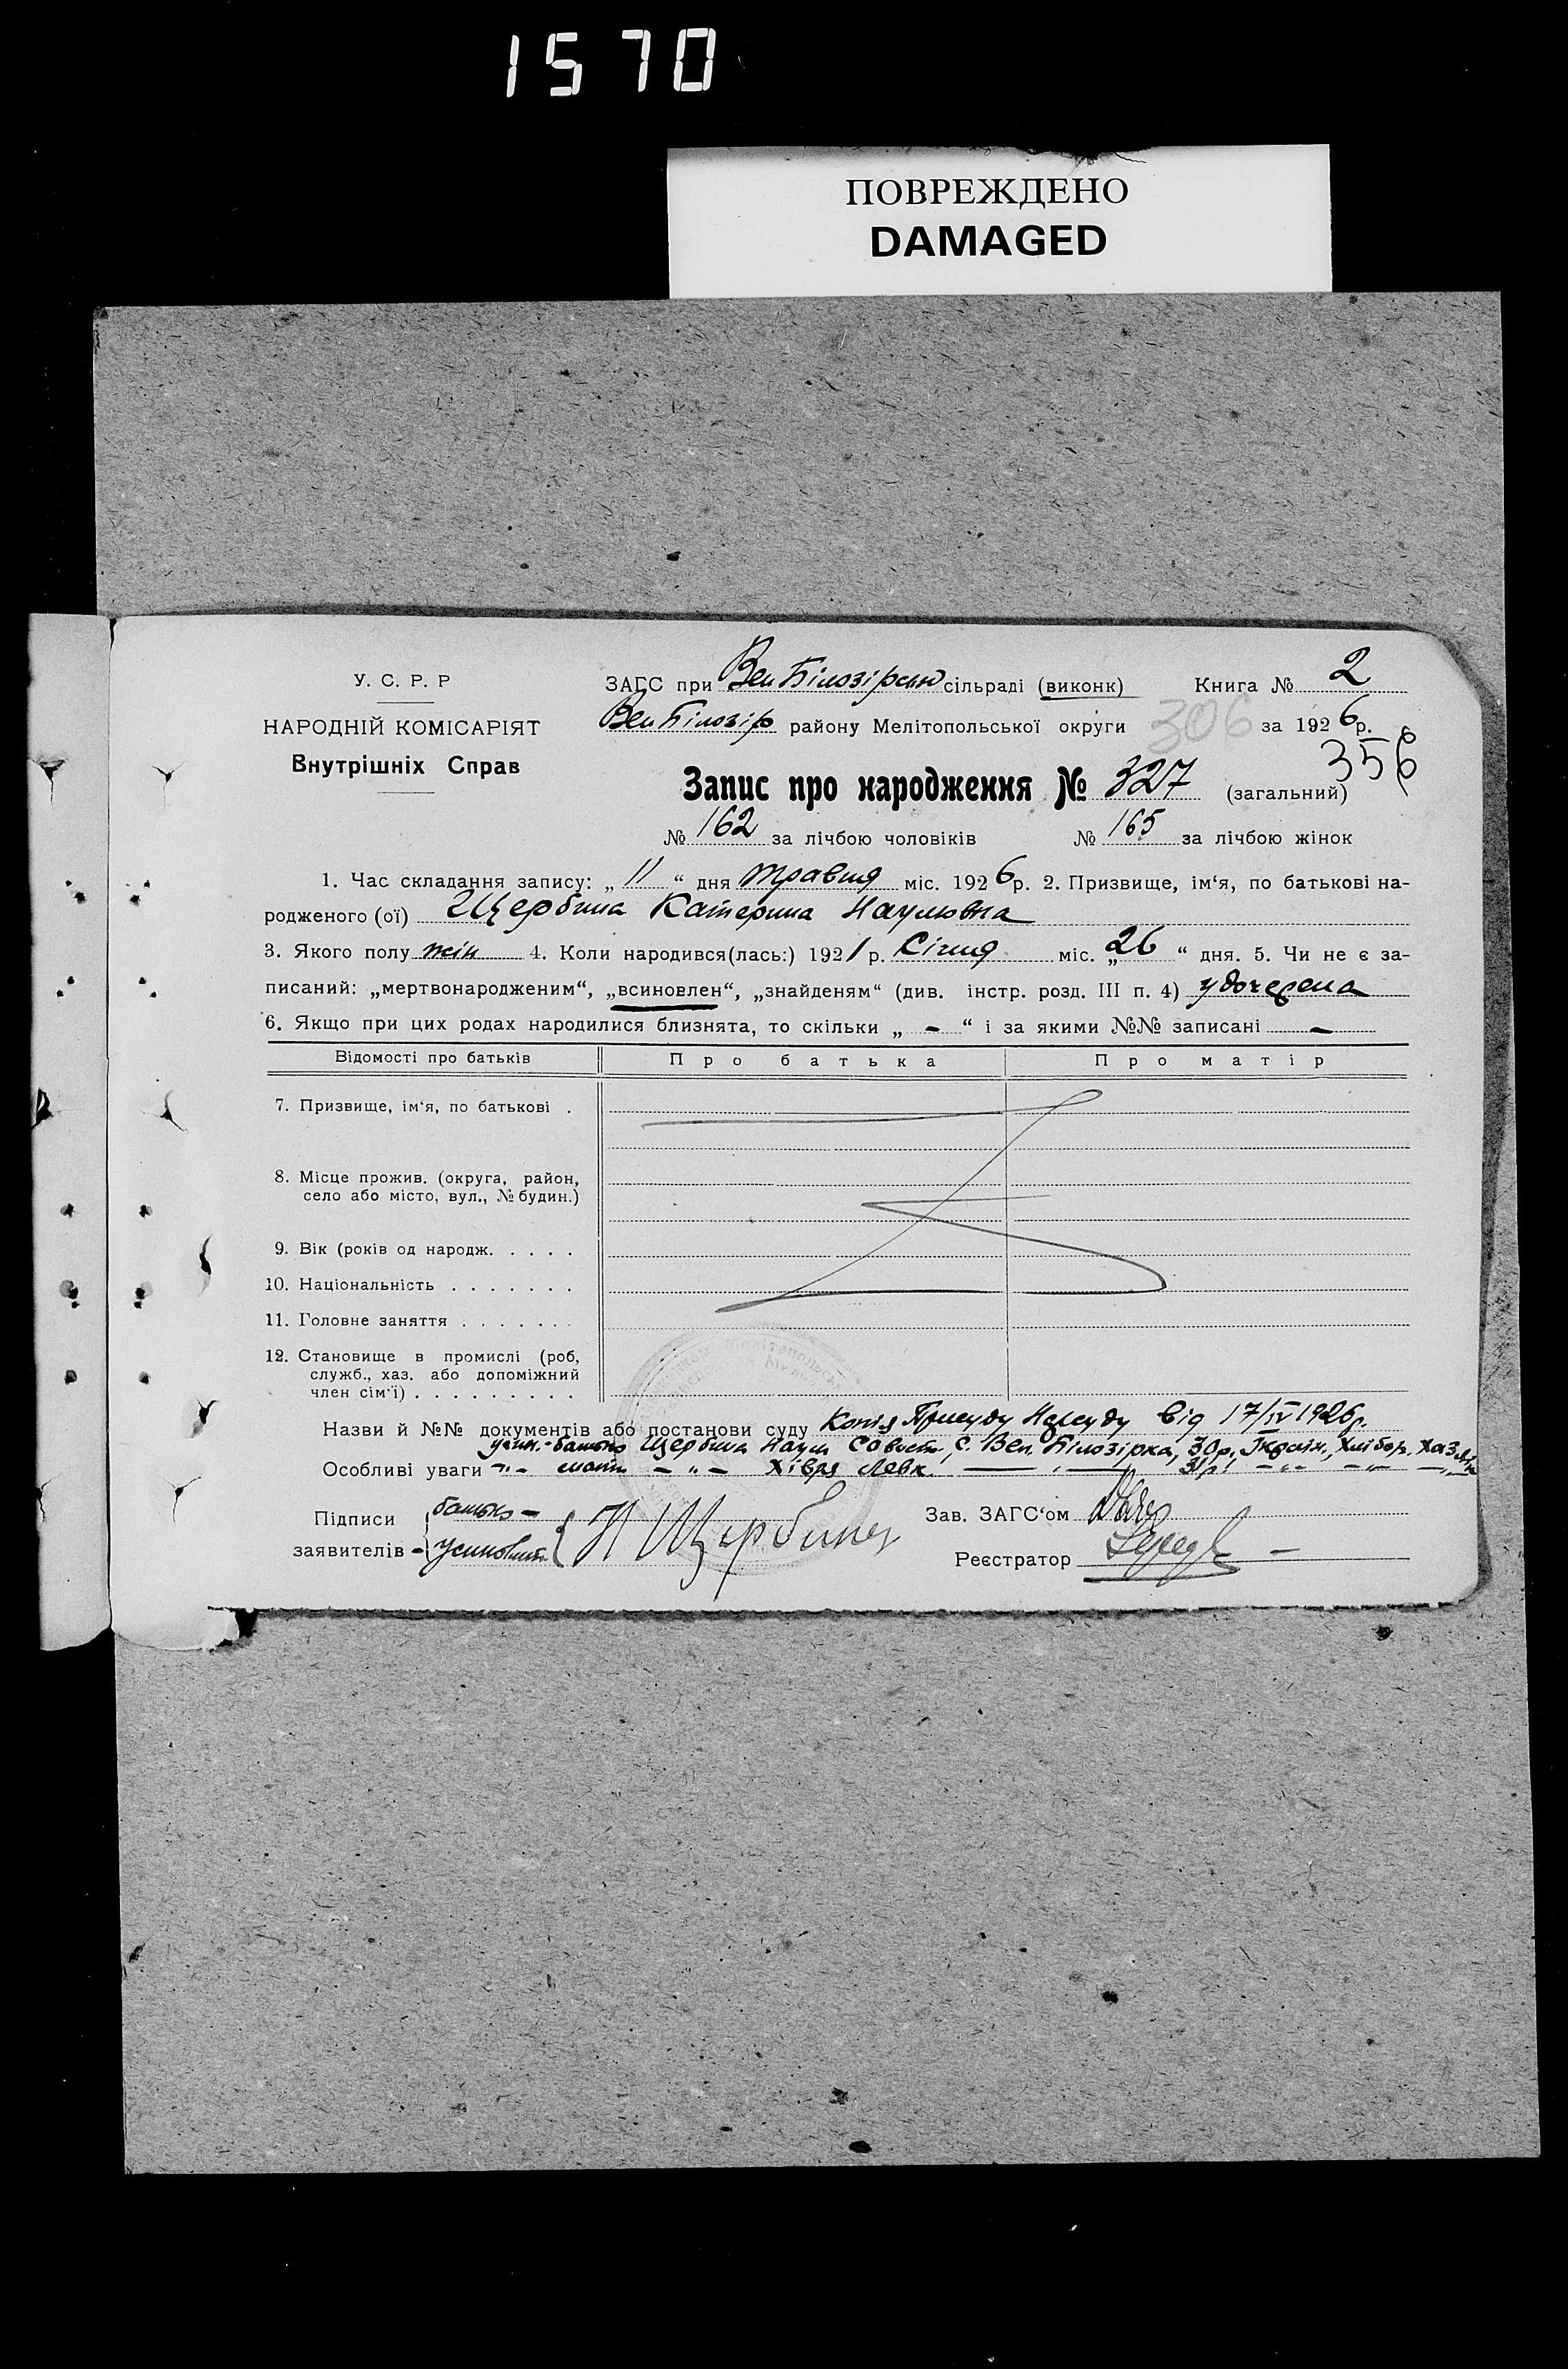 1570
ПОВРЕЖДЕНО
DAMAGED
У. С. Р. Р
НАРОДНІЙ КОМІСАРІЯТ
Внутрішніх Справ
ЗАГС при Вел Білозірськ сільраді (виконк) Книга № 2
Вел Білозір району Мелітопольської округи 306 за 1926 р.
356
Запис про народження № 327 (загальний)
№ 162 за лічбою чоловіків № 165 за лічбою жінок
1. Час складання запису: „ 11 “ дня травня міс. 1926 р. 2. Призвище, ім‘я, по батькові на-
родженого (ої) Щербина Катерина Наумовна
3. Якого полу жін 4. Коли народився(лась:) 1921 р. Січня міс. „ 26 “ дня. 5. Чи не є за-
писаний: „мертвонародженим“, „всиновлен“, „знайденям“ (див. інстр. розд. III п. 4) удочерена
6. Якщо при цих родах народилися близнята, то скільки „ - “ і за якими №№ записані -
Відомості про батьків Про батька Про матір
7. Призвище, ім‘я, по батькові .
8. Місце прожив. (округа, район,
село або місто, вул., № будин.)
9. Вік (років од народж. . . . .
10. Національність . . . . . . .
11. Головне заняття . . . . . . .
12. Становище в промислі (роб,
служб., хаз. або допоміжний
член сім‘ї) . . . . . . . . .
Назви й №№ документів або постанови суду Копія Присуду Нарсуду від 17/IV 1926 р.
усин.-батько Щербина Наум Савост., с. Вел. Білозірка, 30 р., Україн., хлібор. хаз
Особливі уваги -"- мати - " - Хівря Левк. 31 р. -"- -"- -"-
Підписи батько -
заявителів - усиновит. Н Щербина
Зав. ЗАГС‘ом
Реєстратор